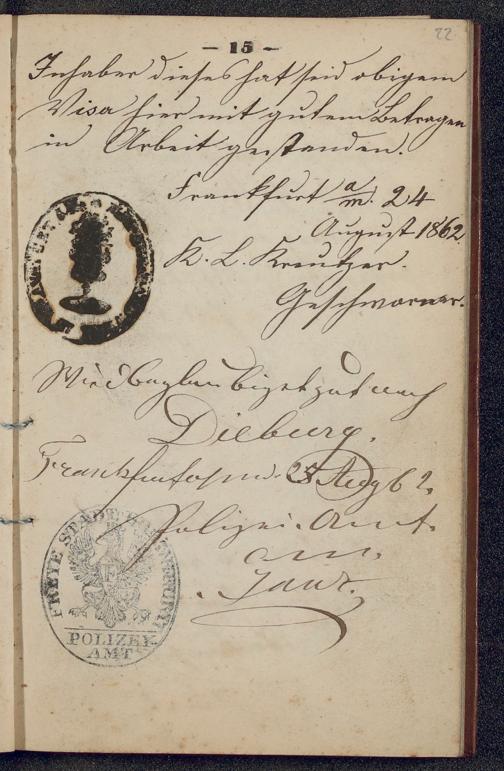 22
— 15 —
Inhaber dieses hat seid obigem
Visa hier mit gutem Betragen
in Arbeit gestanden.
Frankfurt a/m. 24
August 1862
K. L. Kreutzer.
Geschworner.
Wird beglaubigt gut nach
Dieburg.
Frankfurt a/m. 25 Aug 62.
Polizei-Amt.
FREIE STADT FRANKFURT
F
POLIZEY-
AMT